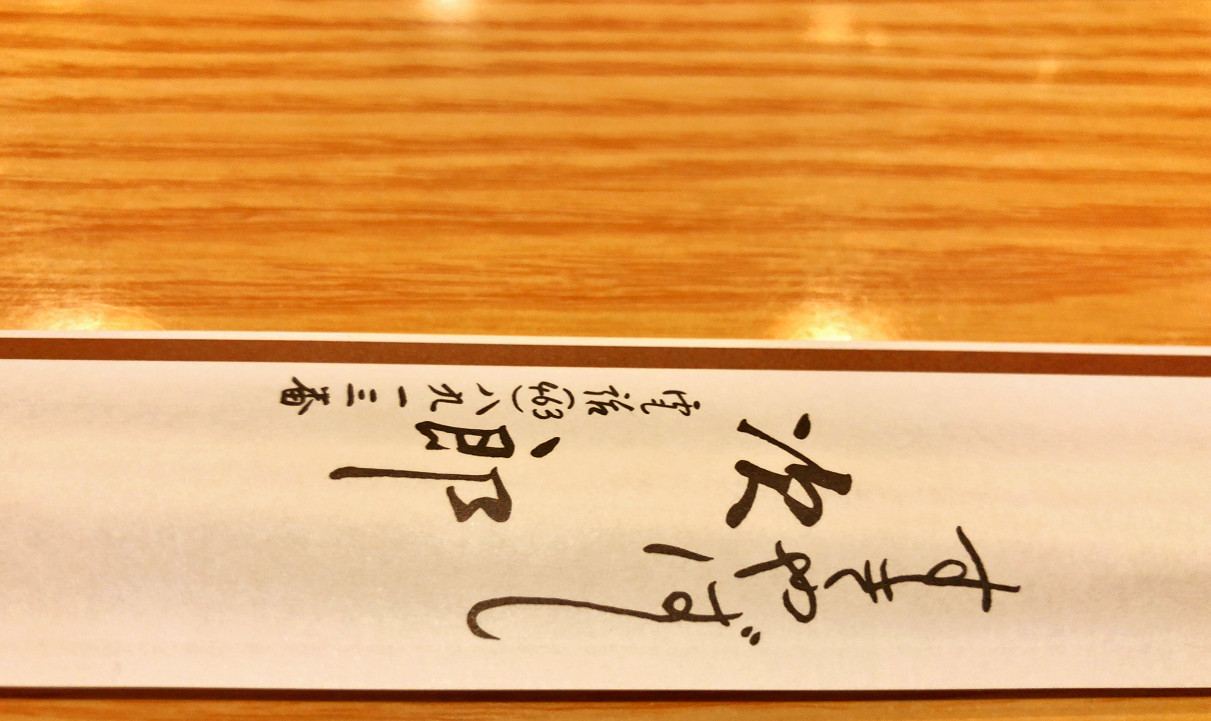 すきやばし
次郎
電話(463)八九一三番